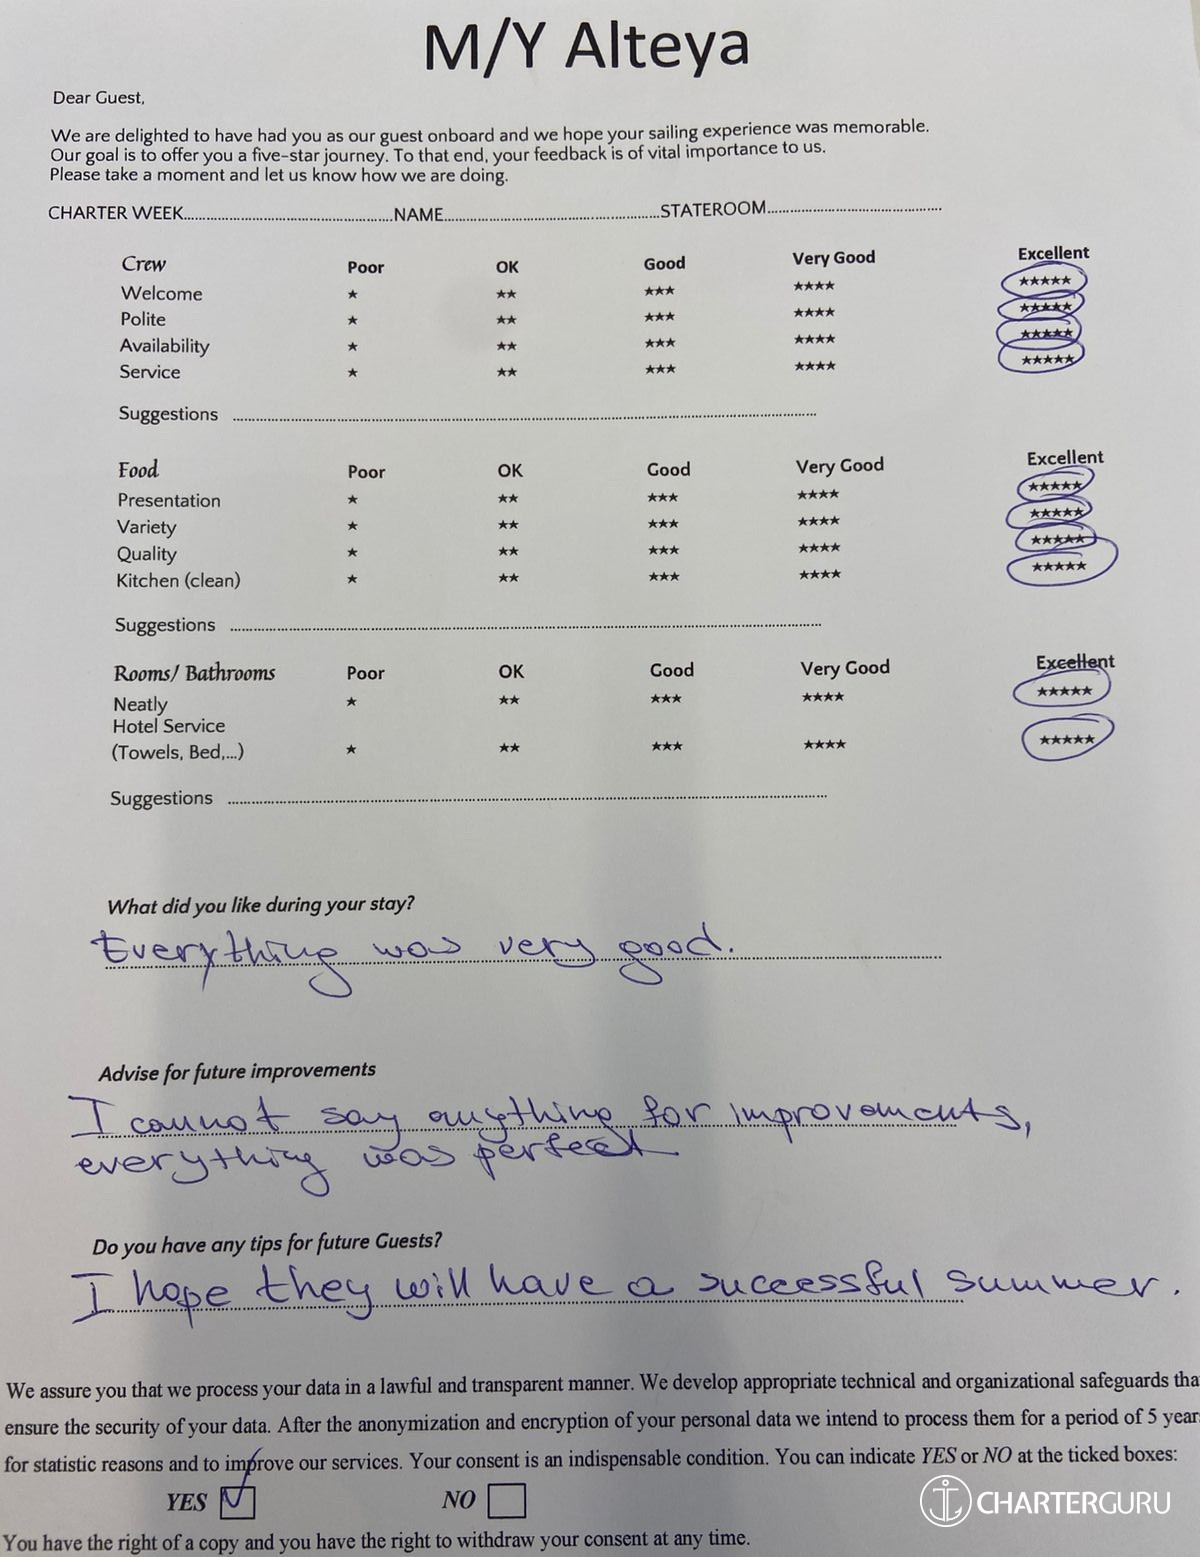 M/Y Alteya
Dear Guest,
We are delighted to have had you as our guest onboard and we hope your sailing experience was memorable.
Our goal is to offer you a five-star journey. To that end, your feedback is of vital importance to us.
Please take a moment and let us know how we are doing.
CHARTER WEEK.......................................................NAME.......................................................STATEROOM..............................................
Crew Poor OK Good Very Good Excellent
Welcome ★ ★★ ★★★ ★★★★ ★★★★★
Polite ★ ★★ ★★★ ★★★★ ★★★★★
Availability ★ ★★ ★★★ ★★★★ ★★★★★
Service ★ ★★ ★★★ ★★★★ ★★★★★
Suggestions ..........................................................................................
Food Poor OK Good Very Good Excellent
Presentation ★ ★★ ★★★ ★★★★ ★★★★★
Variety ★ ★★ ★★★ ★★★★ ★★★★★
Quality ★ ★★ ★★★ ★★★★ ★★★★★
Kitchen (clean) ★ ★★ ★★★ ★★★★ ★★★★★
Suggestions ..........................................................................................
Rooms/ Bathrooms Poor OK Good Very Good Excellent
Neatly ★ ★★ ★★★ ★★★★ ★★★★★
Hotel Service
(Towels, Bed,...) ★ ★★ ★★★ ★★★★ ★★★★★
Suggestions ..........................................................................................
What did you like during your stay?
Everything was very good.
Advise for future improvements
I cannot say anything for improvements,
everything was perfect
Do you have any tips for future Guests?
I hope they will have a successful summer.
We assure you that we process your data in a lawful and transparent manner. We develop appropriate technical and organizational safeguards tha
ensure the security of your data. After the anonymization and encryption of your personal data we intend to process them for a period of 5 year
for statistic reasons and to improve our services. Your consent is an indispensable condition. You can indicate YES or NO at the ticked boxes:
YES ☑ NO ☐
CHARTERGURU
You have the right of a copy and you have the right to withdraw your consent at any time.